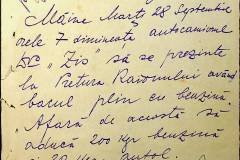 Mâine Marți 28 Septembrie
orele 7 dimineața autocamionul
"Zis" să se prezinte
la Pretura Raionului având
bacul plin cu benzină.
Afară de aceasta să
aducă 200 kgr benzină
20 kgr